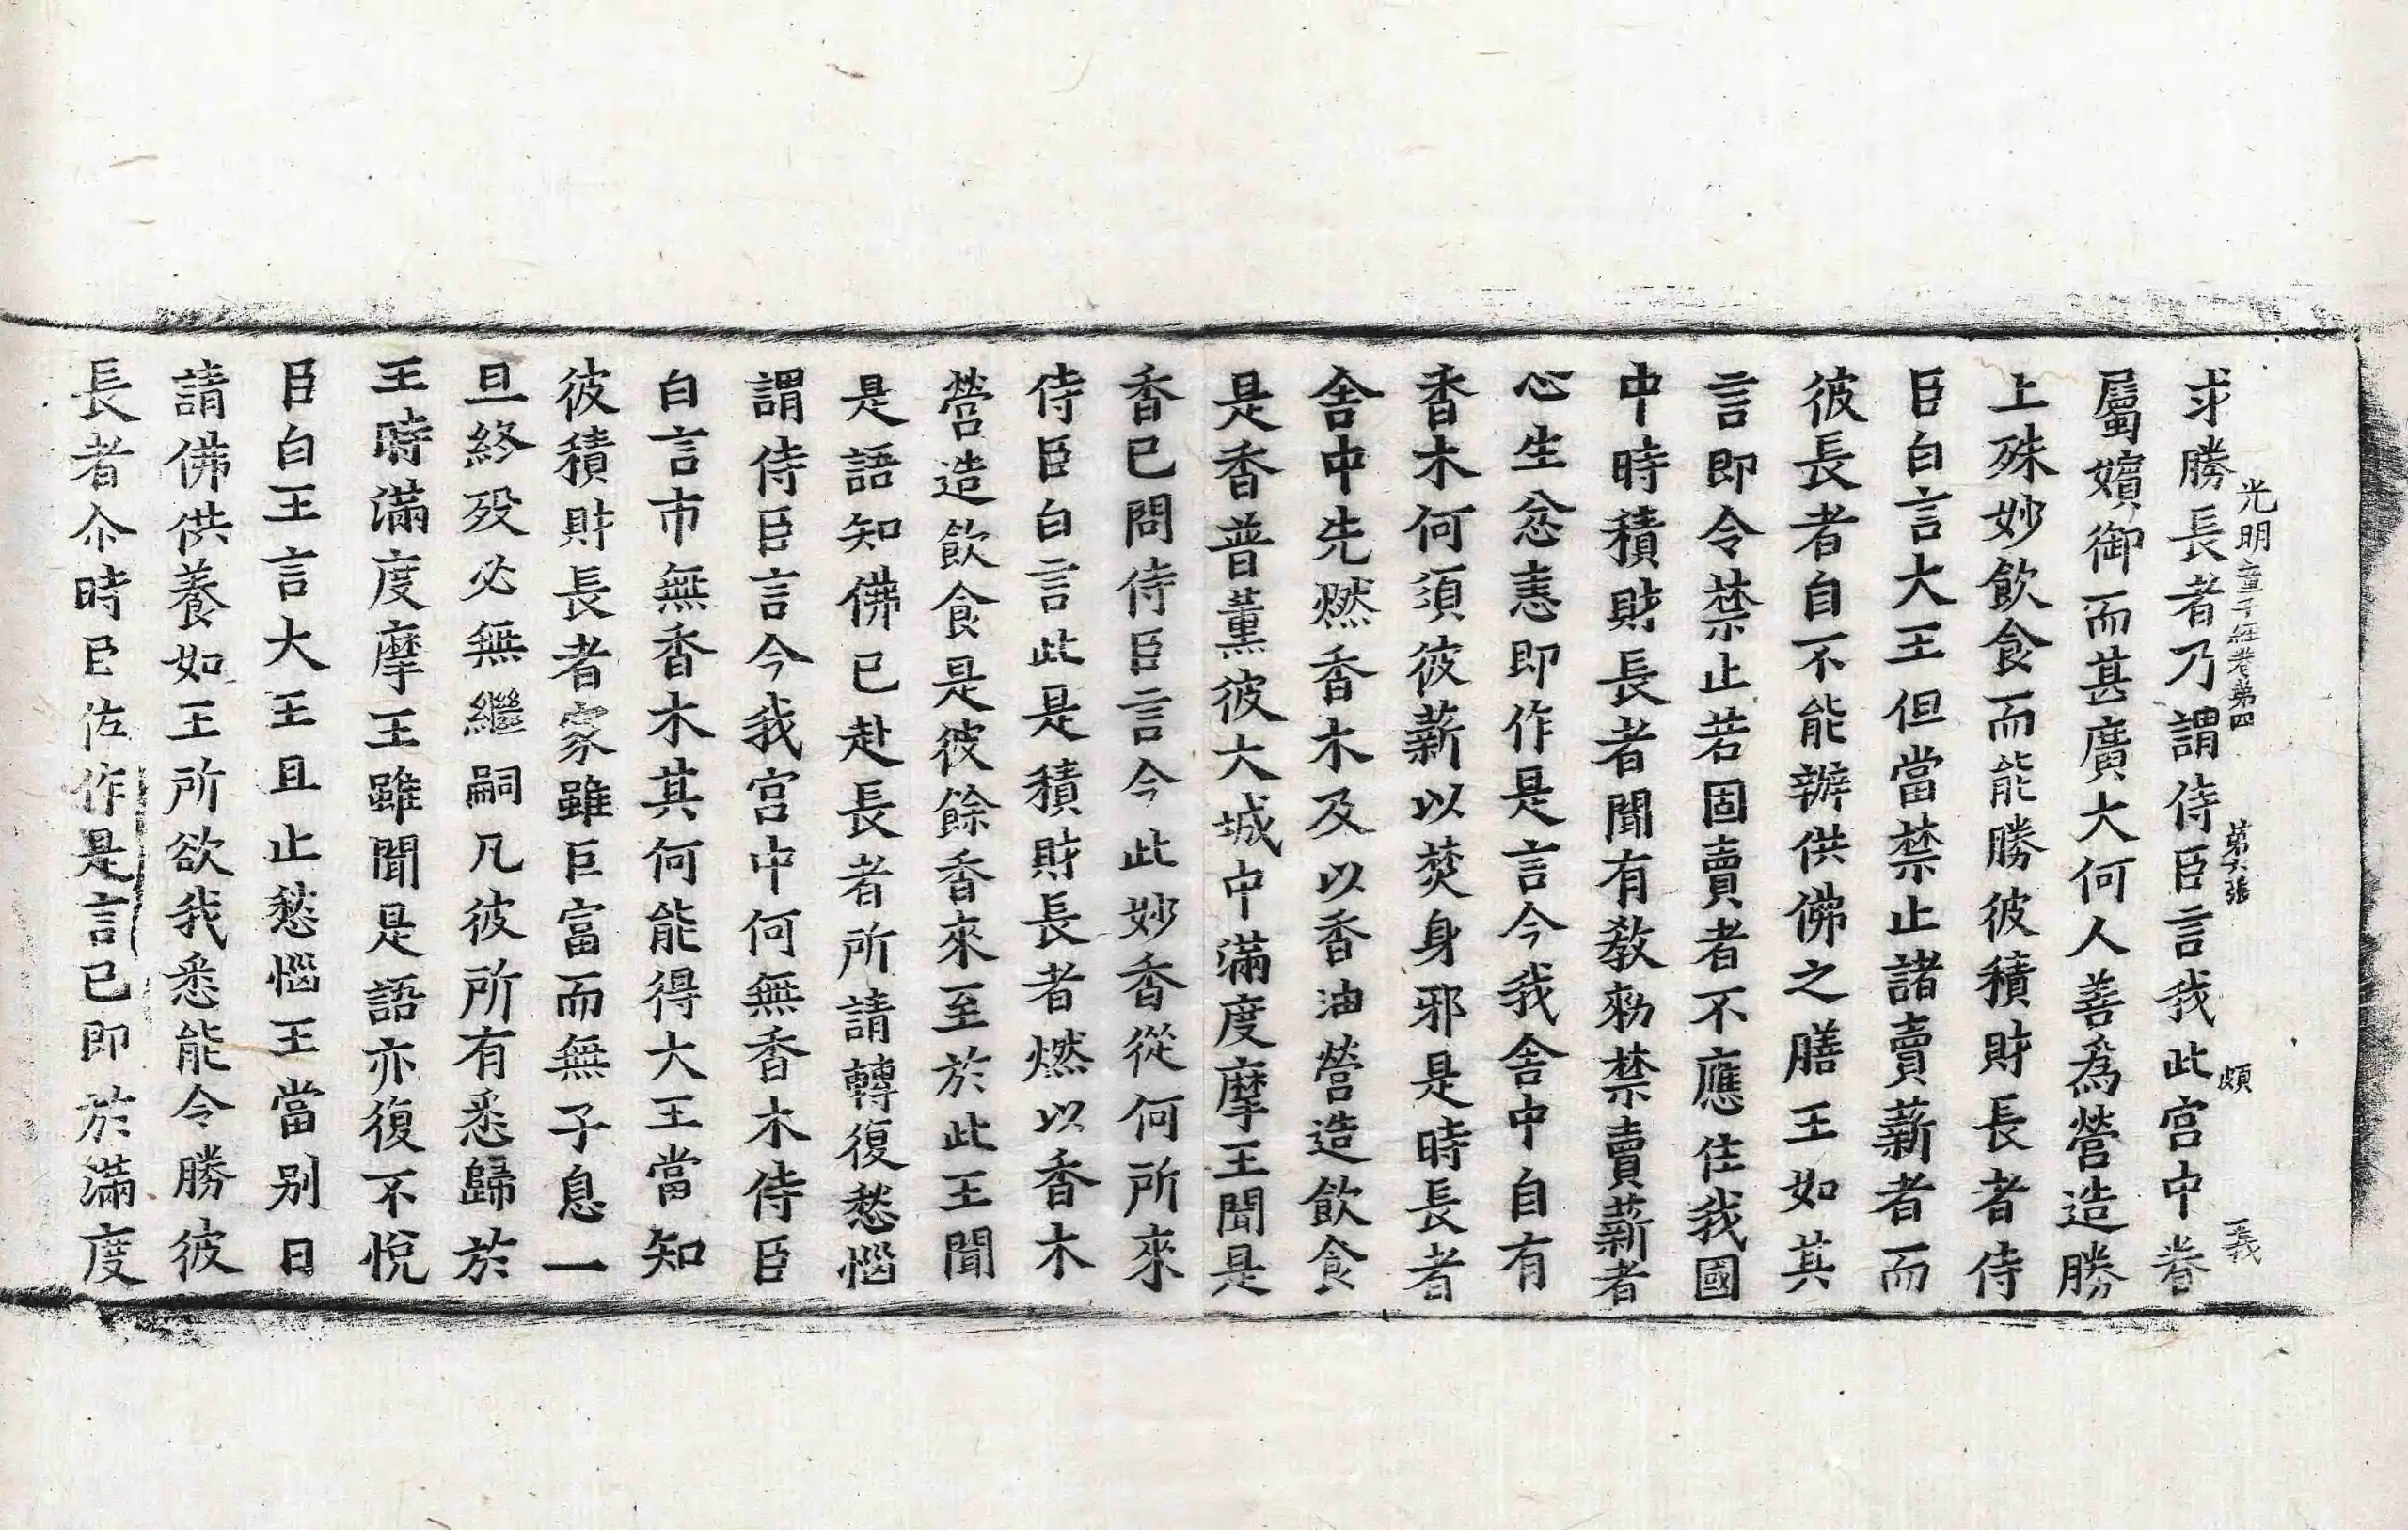 光明童子經卷第四　第六張　頗　王義
求勝長者乃謂侍臣言我此宮中眷
屬嬪御而甚廣大何人善爲營造勝
上殊妙飲食而能勝彼積財長者侍
臣白言大王但當禁止諸賣薪者而
彼長者自不能辦供佛之膳王如其
言即令禁止若固賣者不應住我國
中時積財長者聞有敎勑禁賣薪者
心生忿恚即作是言今我舍中自有
香木何須彼薪以焚身邪是時長者
舍中先燃香木及以香油營造飲食
是香普薰彼大城中滿度摩王聞是
香已問侍臣言今此妙香從何所來
侍臣白言此是積財長者燃以香木
營造飲食是彼餘香來至於此王聞
是語知佛已赴長者所請轉復愁惱
謂侍臣言今我宮中何無香木侍臣
白言市無香木其何能得大王當知
彼積財長者家雖巨富而無子息一
旦終歿必無繼嗣凡彼所有悉歸於
王時滿度摩王雖聞是語亦復不悅
臣白王言大王且止愁惱王當別日
請佛供養如王所欲我悉能令勝彼
長者尒時臣佐作是言已即於滿度